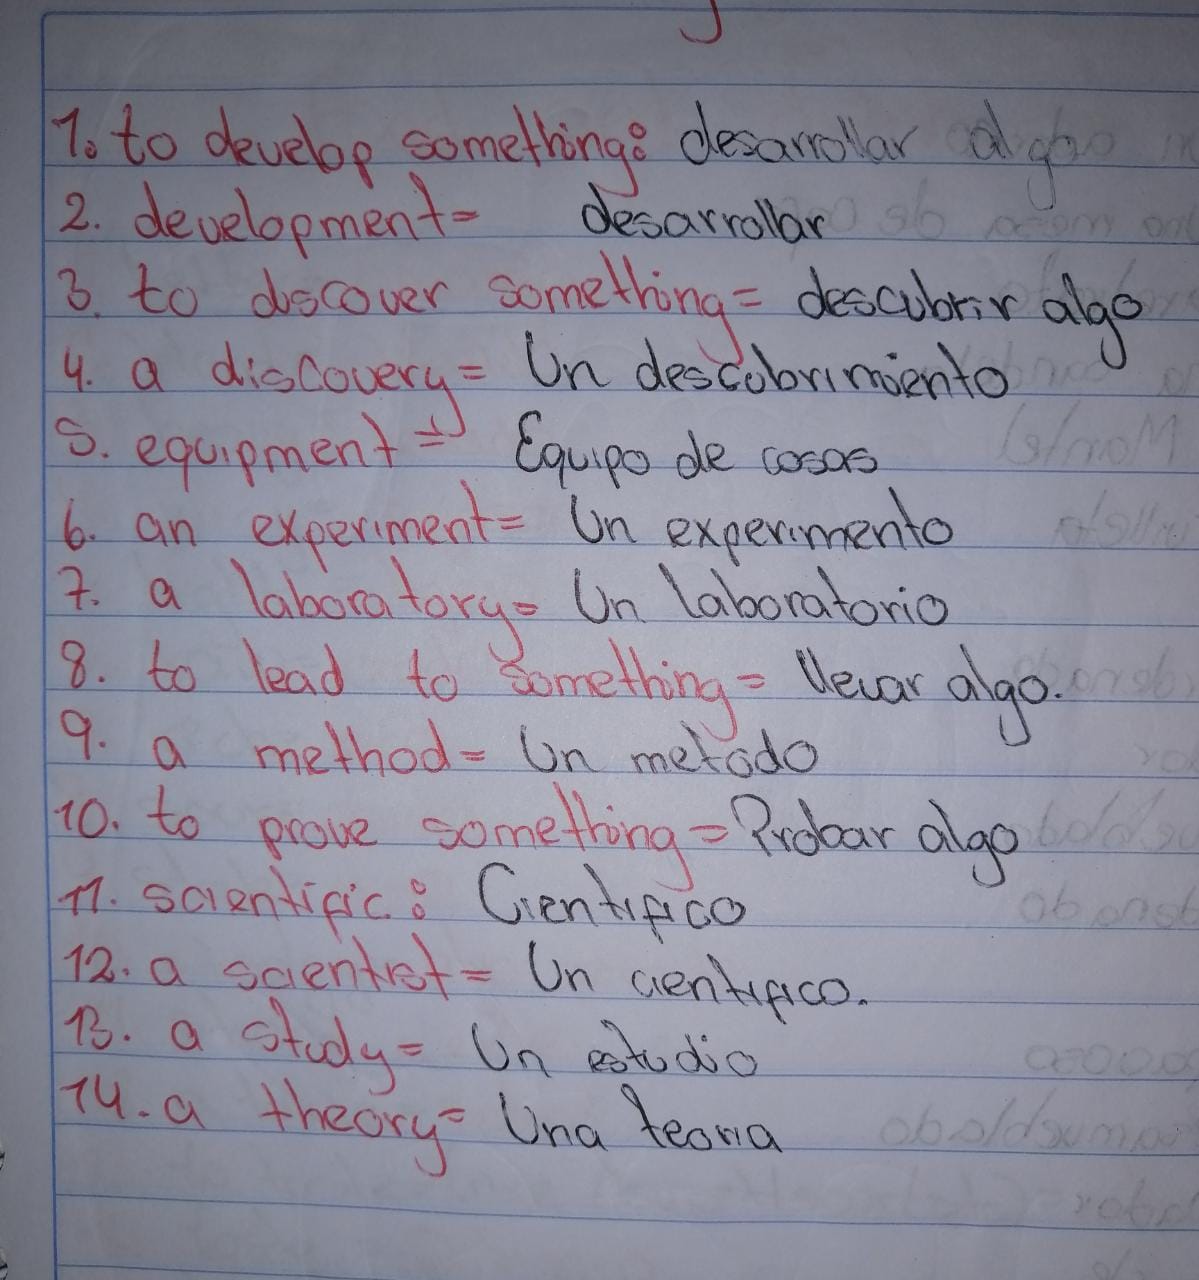 1. to develop something: desarrollar algo
2. development= desarrollar
3. to discover something= descubrir algo
4. a discovery= Un descubrimiento
5. equipment= Equipo de cosas
6. an experiment= Un experimento
7. a laboratory= Un laboratorio
8. to lead to something= llevar algo.
9. a method= Un metodo
10. to prove something= Probar algo
11. scientific: Cientifico
12. a scientist= Un cientifico.
13. a study= Un estudio
14. a theory= Una teoria